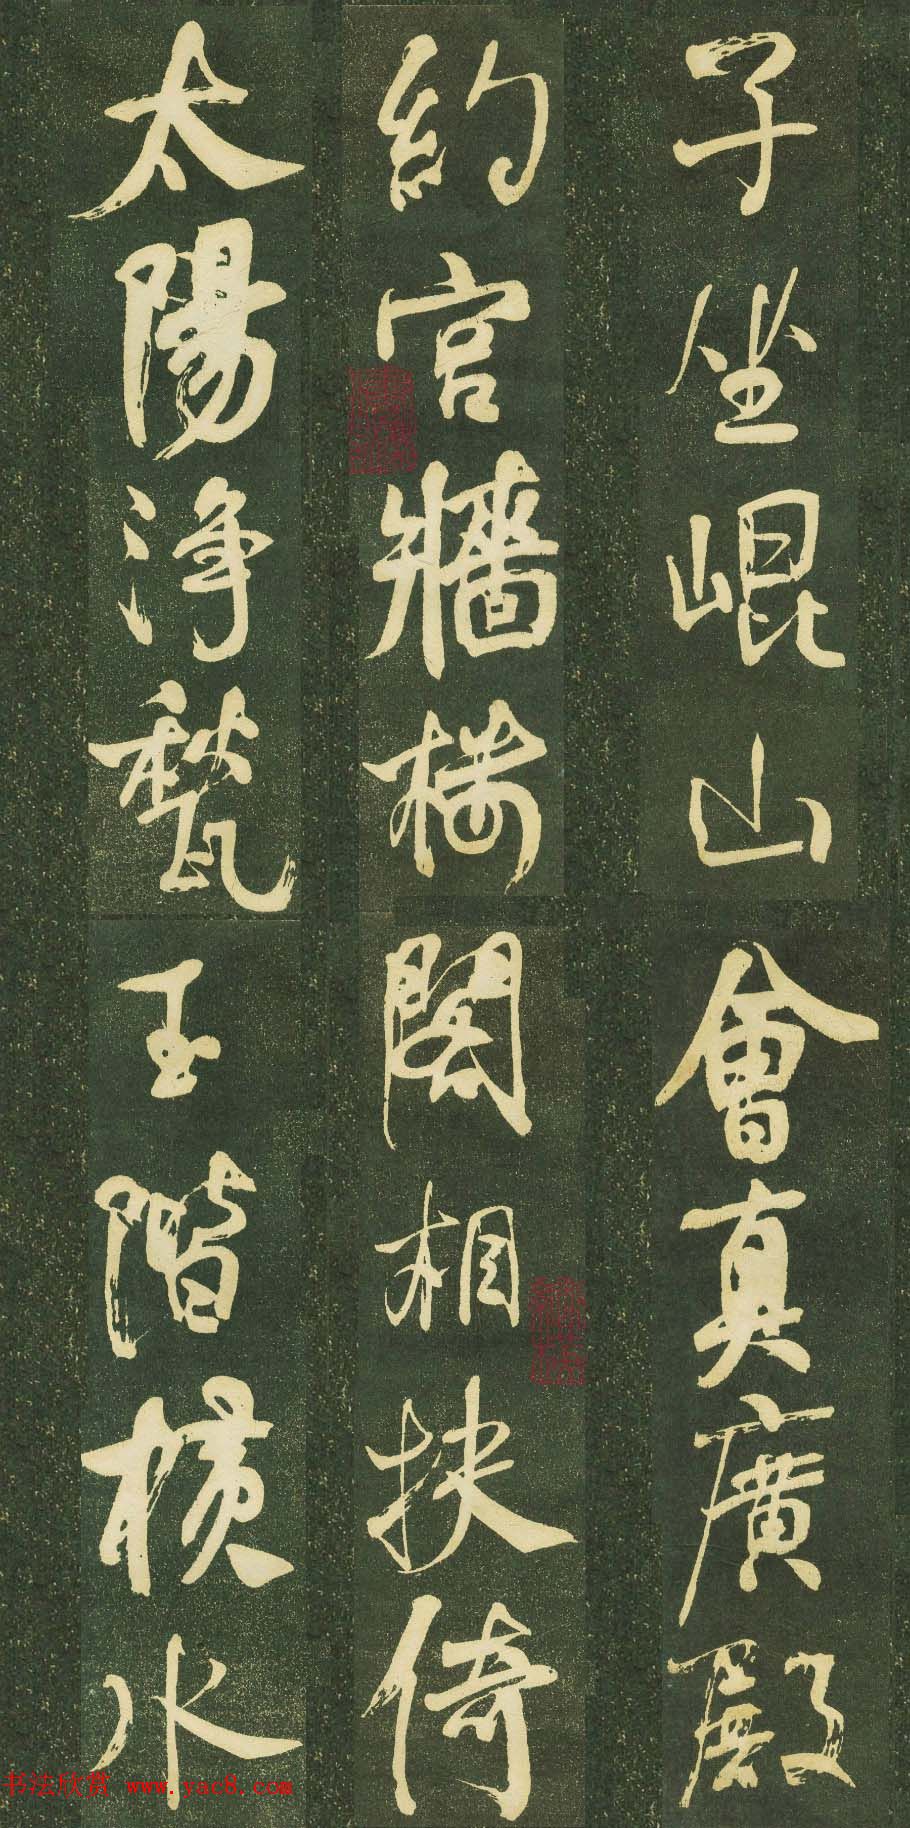 子坐崐山會真廣殿
約官牆樓閣相扶倚
太陽淨甃玉階橫水
书法欣赏 www.yac8.com